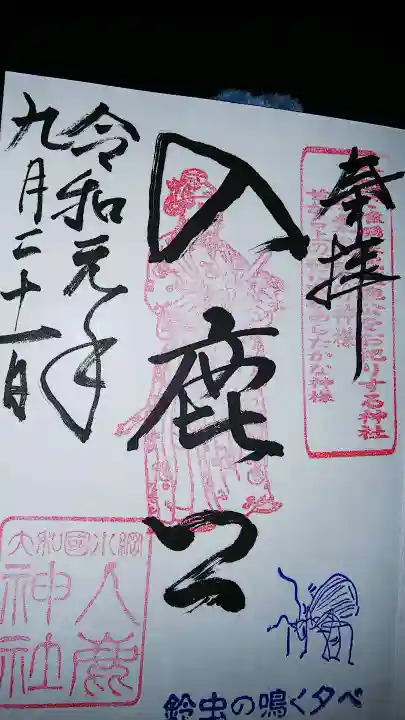 奉拝
入鹿公
令和元年
九月二十一日
をお祀りする神社
したかな神様
大和國小綱
入鹿
神社
鈴虫の鳴く夕べ